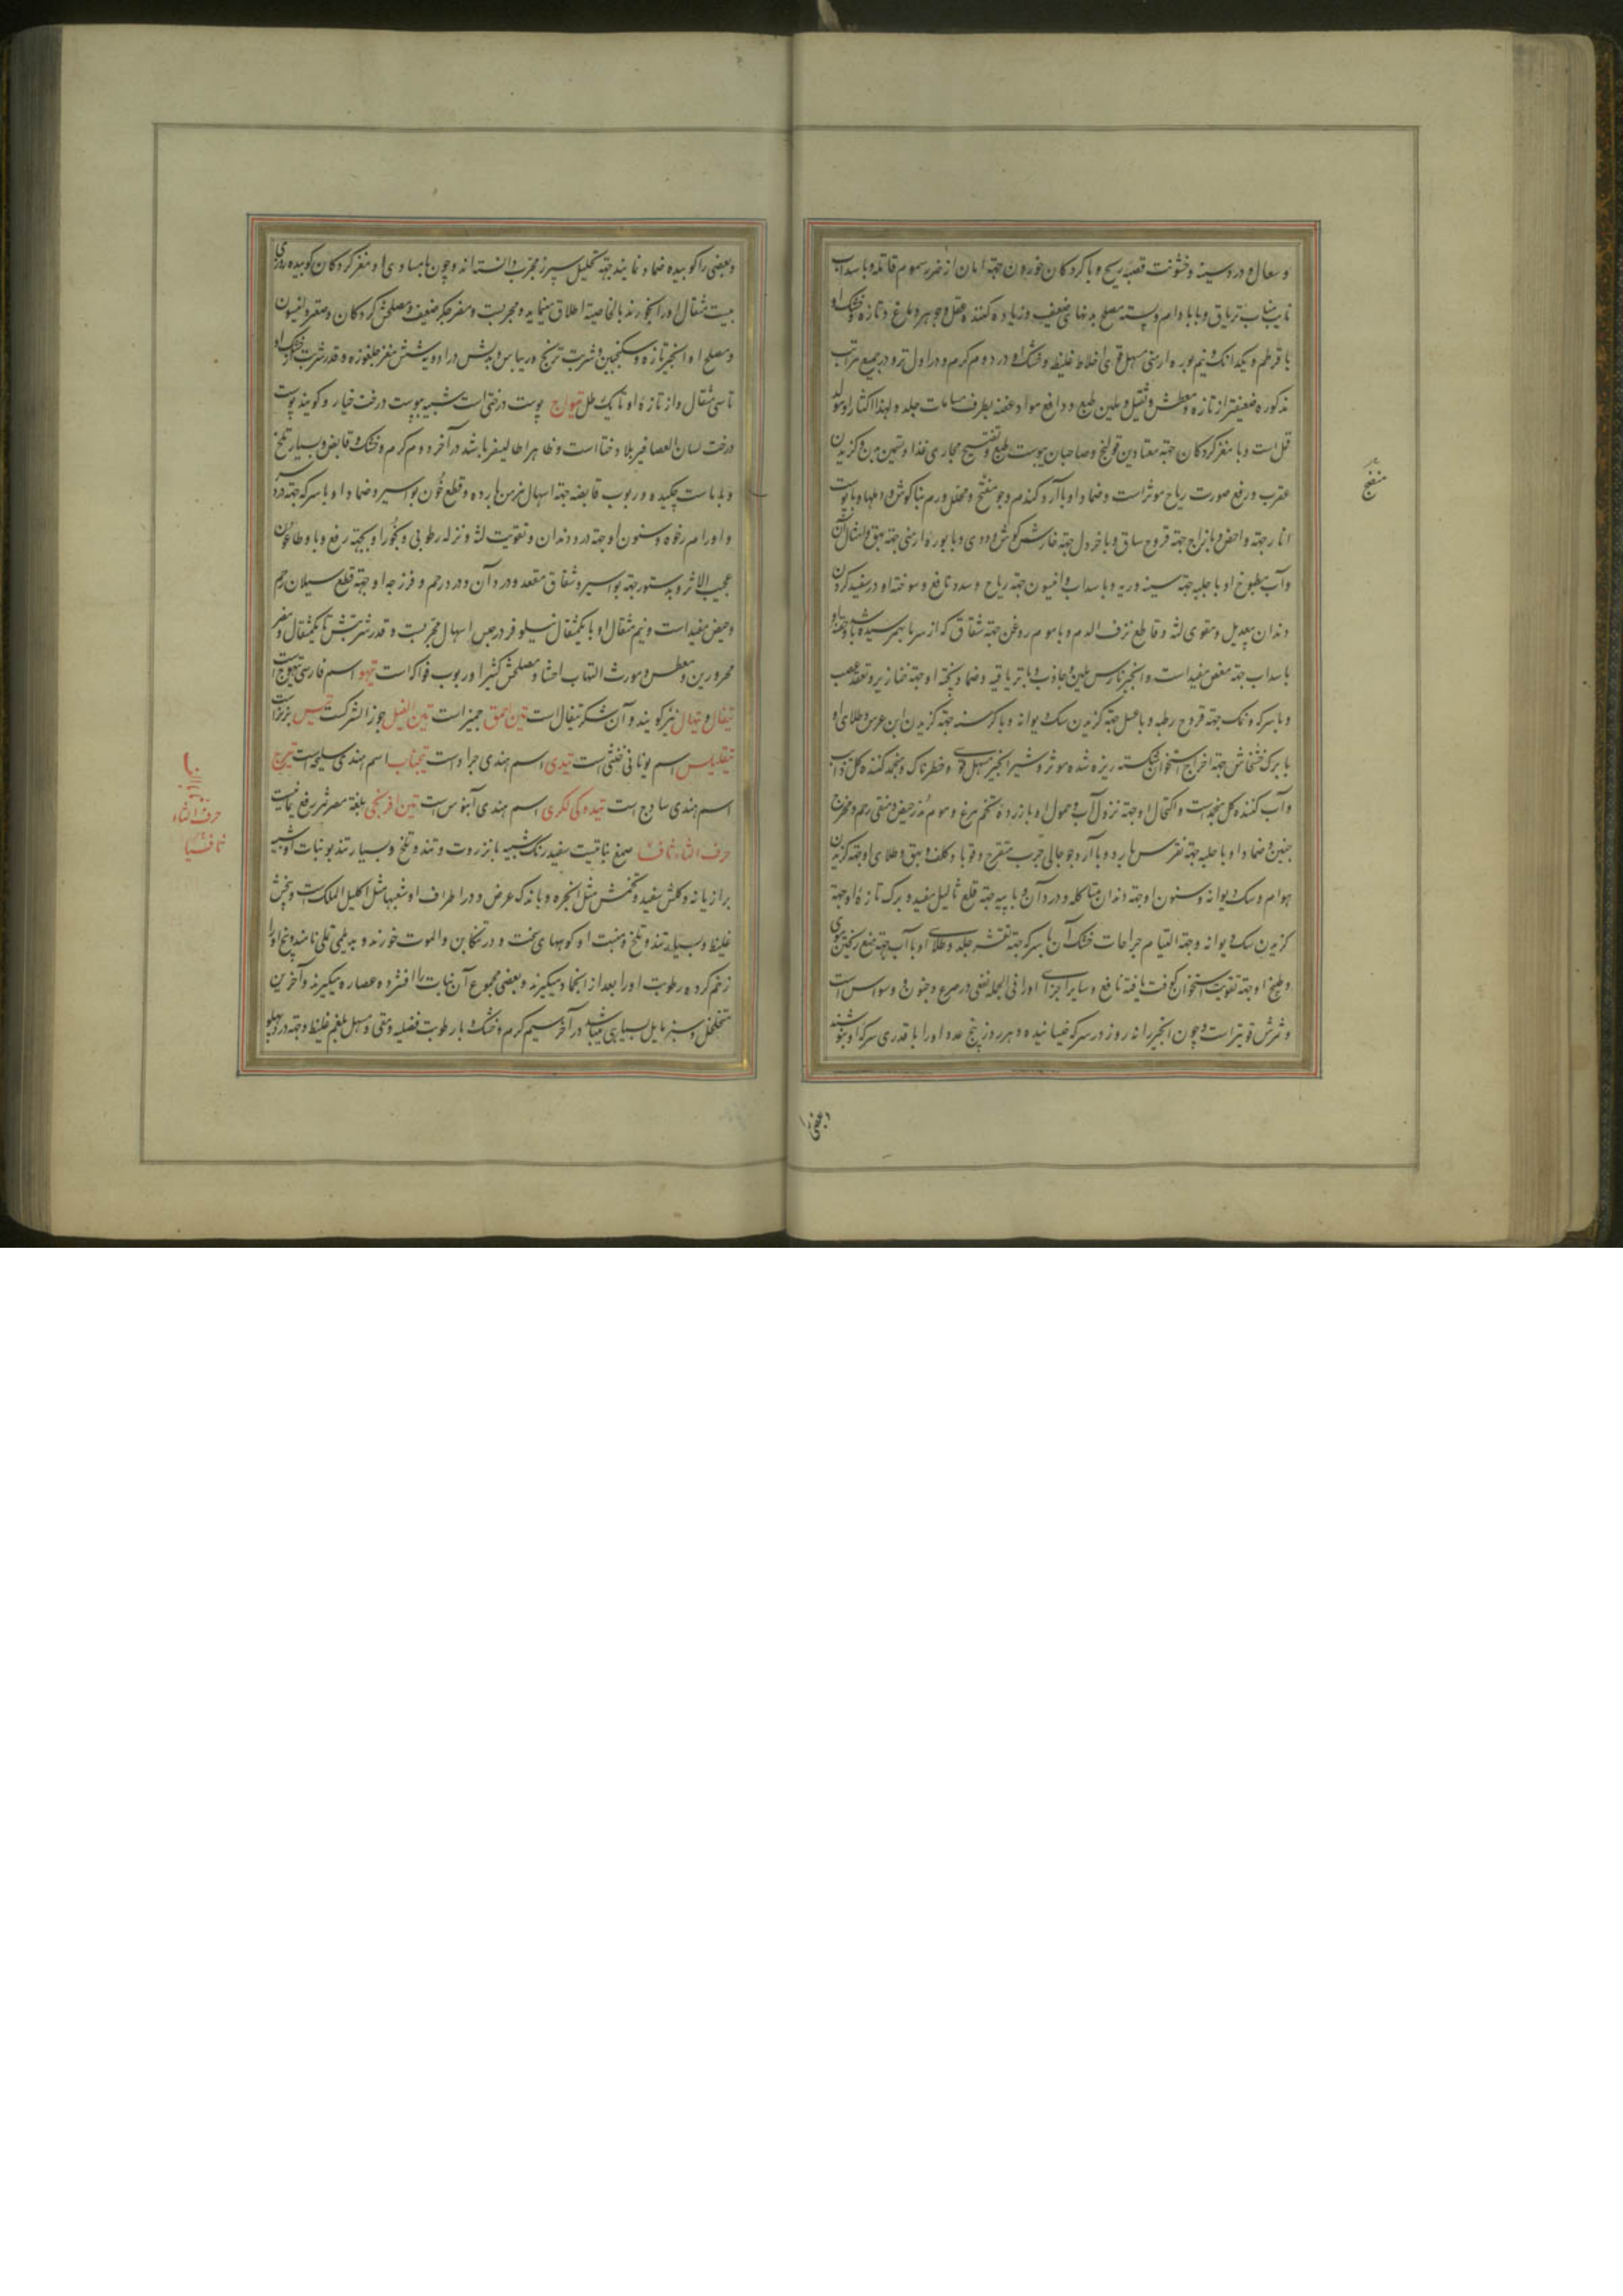 و سعال و درد سینه و خشونت قصبه ریح و با گردکان خوردن جهة امان از ضرر سموم قاتله و با سداب
نایب مناب تریاق و با بادام و پسته مصلح بدنهای ضعیف و زیاده کننده عقل و جوهر دماغ و تازه و خشک او
با قرطم و یکدانک و نیم بوره ارمنی مسهل قوی اخلاط غلیظ و خشک او در دوم گرم و در اول تر و در جمیع مراتب
مذکوره ضعیفتر از تازه و معطش و ثقیل و ملین طبع و دافع مواد عفنه بطرف مسامات جلد و لهذا اکثار او مولد
قمل است و با مغز گردکان جهة معتادین قولنج و صاحبان یبوست طبع و تفتیح مجاری غذا و تسمین بدن و گزیدن
عقرب و رفع صورت ریاح موثر است و ضماد او با آرد گندم و جو منضج و محلل ورم بناگوش و دملها و با پوست
انار جهة داحس و با زاج جهة قروح ساق و با خردل جهة خارش گوش و دوی و با بوره ارمنی جهة بهق و امثال آن
و آب مطبوخ او با حلبه جهة سینه و ریه و با سداب و انیسون جهة ریاح و سدد نافع و سوخته او در سفید کردن
دندان بیعدیل و مقوی لثه و قاطع نزف الدم و با موم روغن جهة شقاق که از سرما بهم رسیده باشد
با سداب جهة مغص مفید است و انجیر نارس ملین و جاذب و با تریاقیه و ضماد پخته او جهة خنازیر و تعقد عصب
و با سرکه و نمک جهة قروح رطبه و با عسل جهة گزیدن سک دیوانه و با کرسنه جهة گزیدن ابن عرس و طلای او
با برک خشخاش جهة اخراج استخوان شکسته ریزه شده موثر و شیر انجیر مسهل قوی و خطرناک و منجمد کننده کل ذائب
و آب کننده کل منجمد است و اکتحال او جهة نزول آب و حمول او با زرده تخم مرغ و موم مدر حیض و منقی رحم و مخرج
جنین و ضماد او با حلبه جهة نقرس بارد و با آرد جو جالی جرب متقرح و قوبا و کلف و بهق و طلای او جهة گزیدن
هوام و سک دیوانه و سنون او جهة دندان متاکله و درد آن و با پیه جهة قلع ثالیل مفید و برک تازه او جهة
گزیدن سک دیوانه و جهة التیام جراحات خشک آن با سرکه جهة تقشر جلد و طلای او با آب جهة منع ریختن موی
و طبیخ او جهة تقویت استخوان کوفت یافته نافع و سایر اجزای او را فی الجمله نفعی در صرع و جنون و وسواس است
و ترش قویتر است و چون انجیر را نه روز در سرکه خیسانیده و هر روز پنج عدد او را با قدری سرکه او بنوشند
منضج
و بعضی را
و بعضی را کوبیده ضماد نمایند جهة تحلیل سپرز مجرب دانسته اند و چون با مساوی او مغز گردکان کوبیده روزی
بیست مثقال او را بخورند بالخاصیة اطلاق مینماید و مجربست و مضر جگر ضعیف و مصلحش گردکان و صعتر و انیسون
و مصلح او انجیر تازه و سکنجبین و شربت ترنج و ریباس و بدلش در ادویه شش مغز جلغوزه و قدر شربت از خشک او
تا سی مثقال و از تازه او تا یک رطل تیواج پوست درختی است شبیه بپوست درخت خیار و گویند پوست
درخت لسان العصافیر بلاد ختا است و ظاهرا طالیسفر باشد در آخر دوم گرم و خشک و قابض و بسیار تلخ
و با ماست چکیده و ربوب قابضه جهة اسهال مزمن بارده و قطع خون بواسیر و ضماد او با سرکه جهة درد سر
و اورام رخوه و سنون او جهة درد دندان و تقویت لثه و نزله رطوبی و بخور او بجهة رفع وبا و طاعون
عجیب الاثر و بدستور جهة بواسیر و شقاق مقعد و درد آن و درد رحم و فرزجه او جهة قطع سیلان رحم
و حیض مفید است و نیم مثقال او با یکمثقال نیلوفر در حبس اسهال مجربست و قدر شربتش تا یکمثقال و مضر
محرورین و معطس و مورث التهاب احشا و مصلحش کثیرا و ربوب فواکه است تیهو اسم فارسی تیهوج است
تیغال و تیهال نیز گویند و آن شکر تیغال است تین احمق جمیز است تین الفیل جوز الشرک است تیس بز نر است
تیقلیس اسم یونانی خنثی است تیدی اسم هندی جراد است تیجناب اسم هندی سلیخه است تیرج
اسم هندی ساذج است تیدوکی لکری اسم هندی آبنوس است تین افرنجی بلغة مصر ثمر
حرف الثاء ثافسیا صمغ نباتیست سفید رنگ شبیه بانزروت و تند و تلخ و بسیار تند بو نبات او شبیه
برازیانه و گلش سفید و تخمش مثل انجره و باندک عرض و در اطراف او شعبها مثل اکلیل الملک است و بیخش
غلیظ و بسیار تند و تلخ و منبت او کوههای سخت و در تنکابن و الموت خورند و بدیلمی تلی نامند و بیخ او را
زخم کرده رطوبت او را بعد از انجماد میگیرند و بعضی مجموع آن نبات را افشرده عصاره میگیرند و آخرین
متخلخل و سبز مایل بسیاهی میباشد در آخر سیم گرم و خشک و با رطوبت فضلیه و مقی و مسهل بلغم غلیظ و جهة درد پهلو
حرف الثاء
ثافسیا